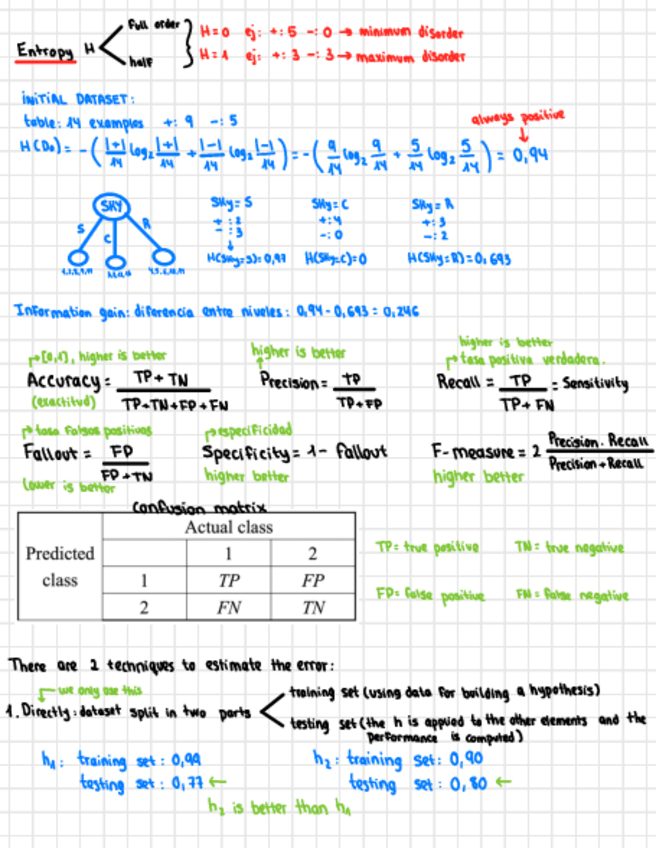 Entropy H
full order
half
H=0 ej: +:5 -:0 → minimum disorder
H=1 ej: +:3 -:3 → maximum disorder
INITIAL DATASET:
table: 14 examples +: 9 -: 5
always positive
H(D₀) = -(|+|/14 log₂ |+|/14 + |-|/14 log₂ |-|/14) = -(9/14 log₂ 9/14 + 5/14 log₂ 5/14) = 0,94
SKY
S C R
Sky=S Sky=C Sky=R
+:2 +:4 +:3
-:3 -:0 -:2
H(Sky=S)=0,97 H(Sky=C)=0 H(Sky=R)=0,693
Information gain: diferencia entre niveles: 0,94 - 0,693 = 0,246
[0,1], higher is better
higher is better
higher is better
tasa positiva verdadera.
Accuracy = TP + TN / TP+TN+FP+FN
(exactitud)
Precision = TP / TP+FP
Recall = TP / TP + FN = Sensitivity
tasa falsos positivos
especificidad
Fallout = FP / FP+TN
lower is better
Specificity = 1 - fallout
higher better
F-measure = 2 Precision · Recall / Precision + Recall
higher better
confusion matrix
Actual class
Predicted class
1 2
1 TP FP
2 FN TN
TP= true positive TN= true negative
FP= false positive FN= false negative
There are 2 techniques to estimate the error:
we only use this
1. Directly: dataset split in two parts
training set (using data for building a hypothesis)
testing set (the h is applied to the other elements and the
performance is computed)
h₁: training set: 0,99
testing set: 0,77 ←
h₂: training set: 0,90
testing set: 0,80 ←
h₂ is better than h₁